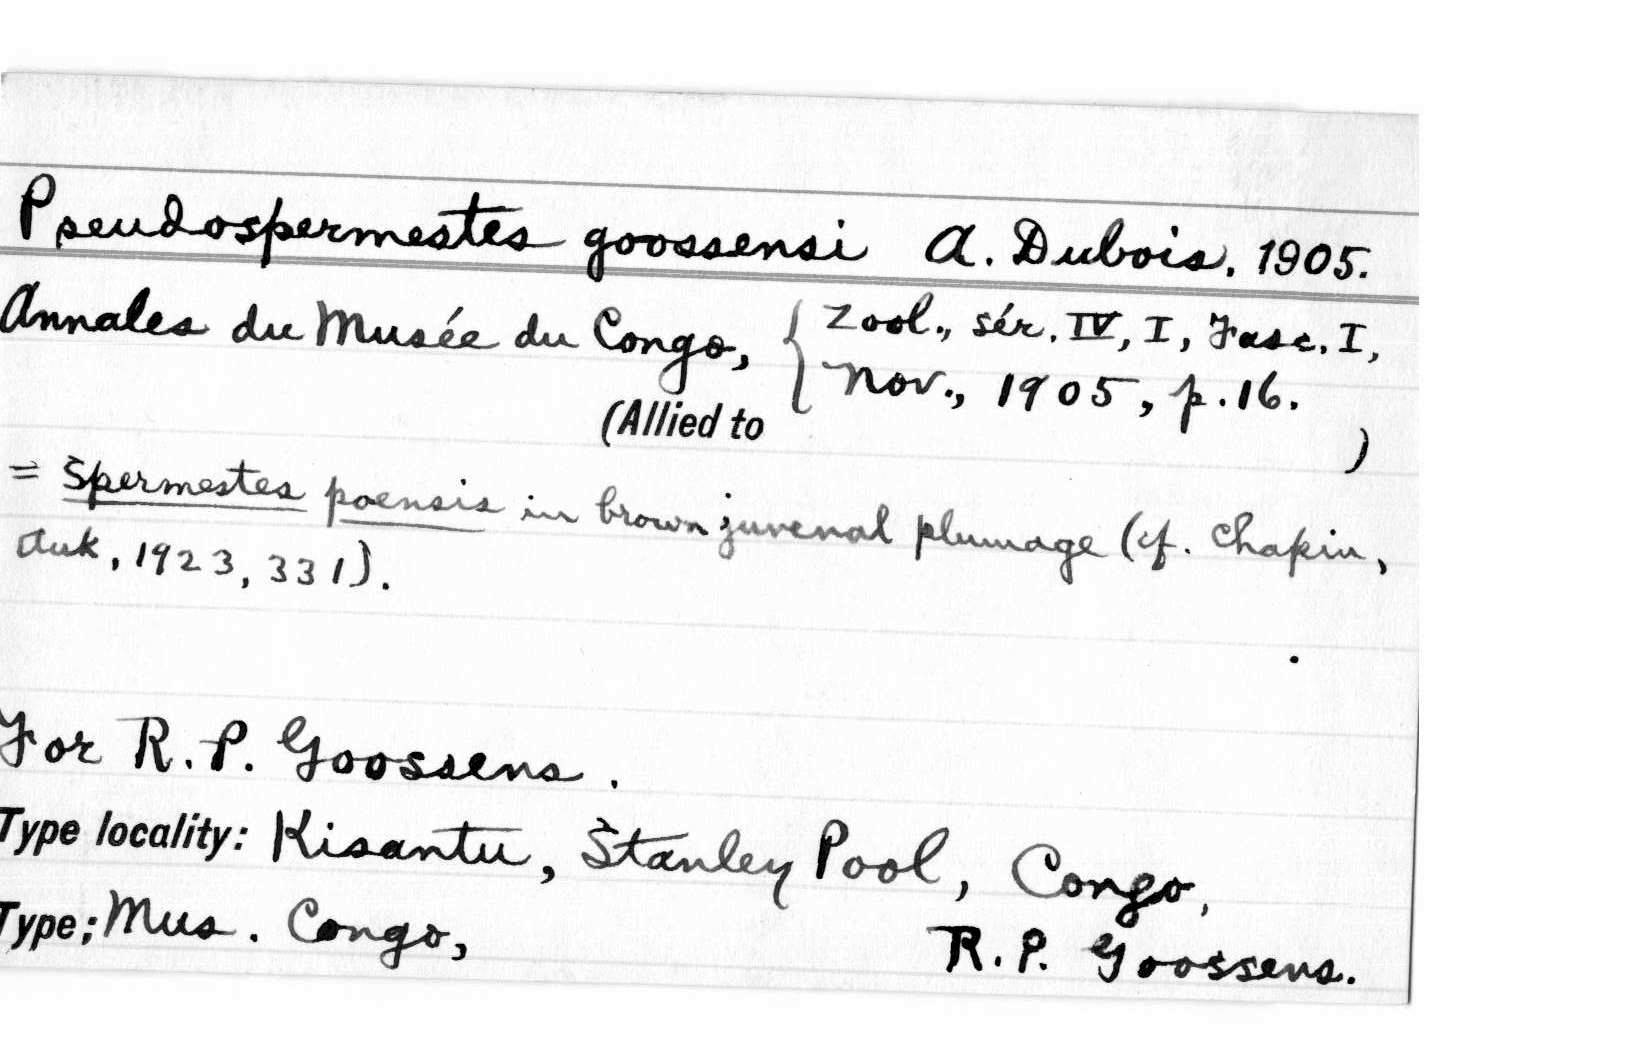 Pseudospermestes goossensi A. Dubois, 1905.
Annales du Musée du Congo, { Zool., sér. IV, I, Fasc. I,
Nov., 1905, p. 16.
(Allied to )
= Spermestes poensis in brown juvenal plumage (cf. Chapin,
Auk, 1923, 331).
For R. P. Goossens.
Type locality: Kisantu, Stanley Pool, Congo,
Type; Mus. Congo, R. P. Goossens.